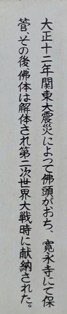 大正十二年関東大震災によって佛頭がおち、寛永寺にて保
管、その後佛体は解体され第二次世界大戦時に献納された。